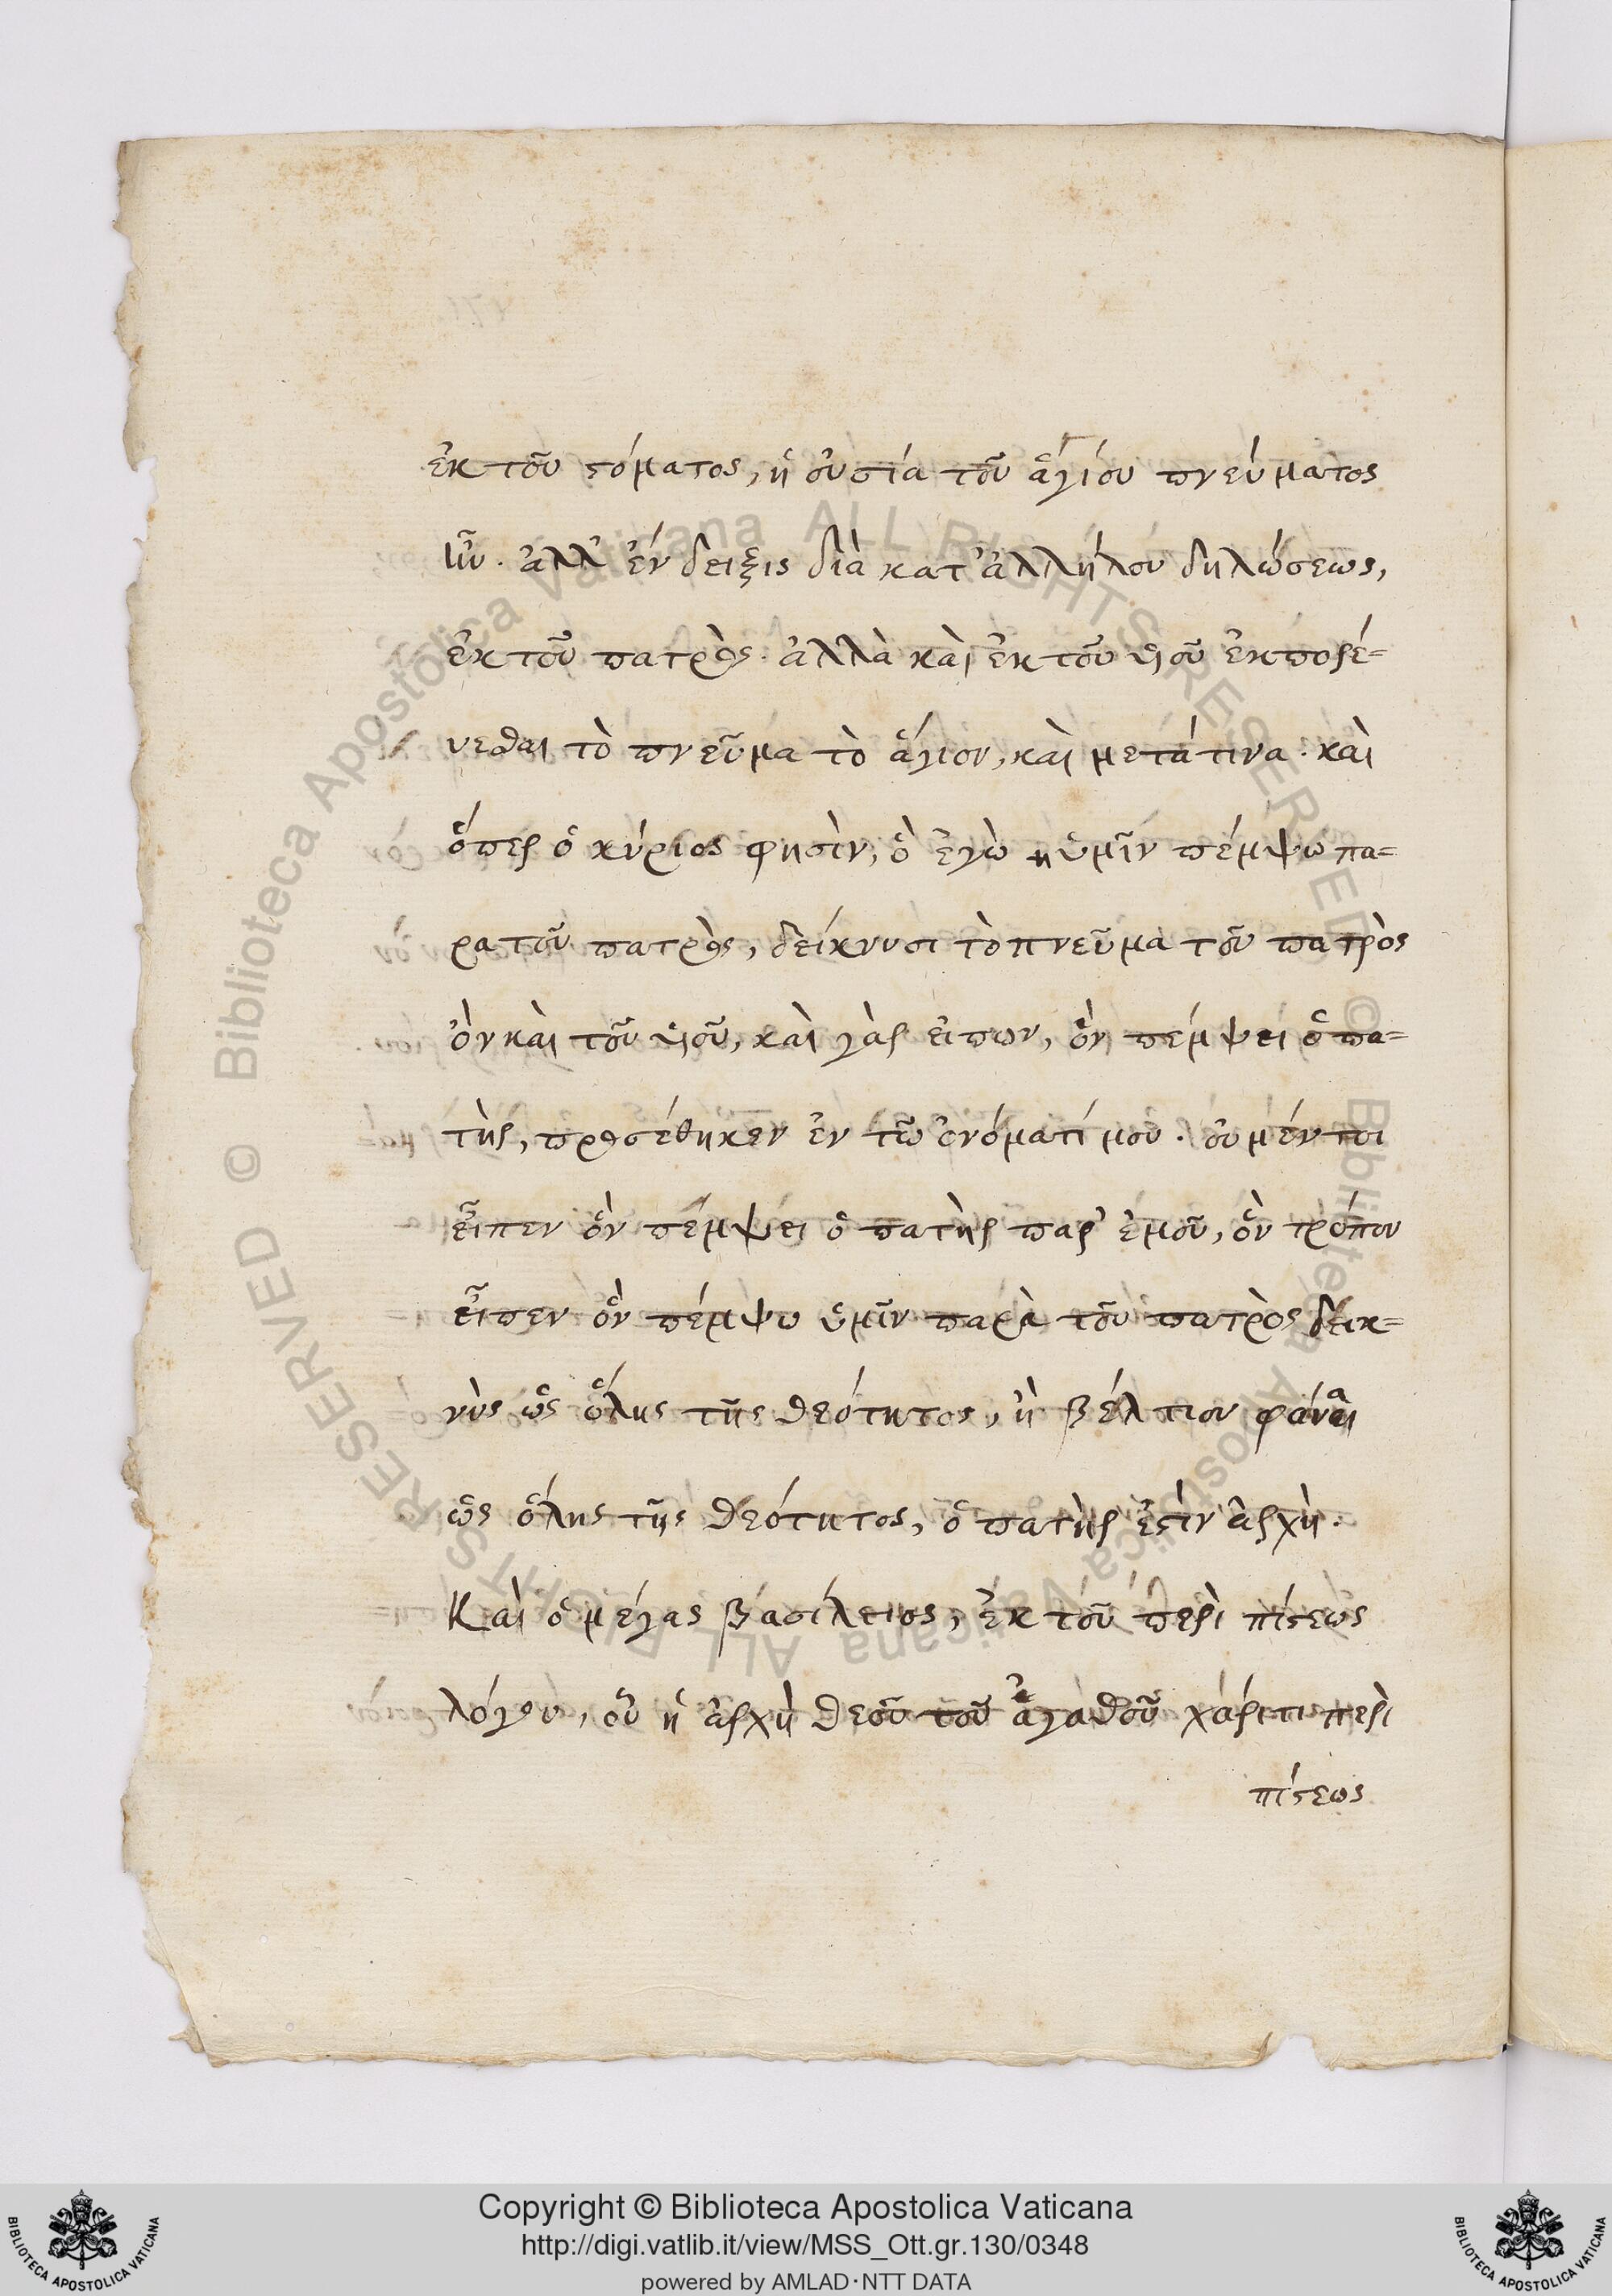 ἐκ τοῦ στόματος, ἡ οὐσία τοῦ ἁγίου πνεύματος
ἦν. ἀλλ' ἔνδειξις διὰ κατ' ἀλλήλου δηλώσεως,
ἐκ τοῦ πατρὸς. ἀλλὰ καὶ ἐκ τοῦ υἱοῦ ἐκπορέ=
υεσθαι τὸ πνεῦμα τὸ ἅγιον, καὶ μετά τινα. καὶ
ὅπερ ὁ κύριος φησὶν, ὃ ἐγὼ ὑμῖν πέμψω πα=
ρα τοῦ πατρὸς, δείκνυσι τὸ πνεῦμα τοῦ πατρὸς
ὂν καὶ τοῦ υἱοῦ, καὶ γὰρ εἰπων, ὃν πέμψει ὁ πα=
τὴρ, προσέθηκεν ἐν τῶ ὀνόματί μου. οὐ μέν τοι
εἶπεν ὃν πέμψει ὁ πατὴρ παρ' ἐμοῦ, ὃν τρόπον
εἶπεν ὃν πέμψω ὑμῖν παρὰ τοῦ πατρὸς δεικ=
νὺς ὡς ὅλης τῆς θεότητος, ἢ βέλτιον φάναι
ὡς ὅλης τῆς θεότητος, ὁ πατὴρ ἐστὶν ἀρχὴ.
Καὶ ὁ μέγας βασίλειος, ἐκ τοῦ περὶ πίστεως
λόγου, οὗ ἡ ἀρχὴ θεοῦ τοῦ ἀγαθοῦ χάριτι περὶ
πίστεως
Copyright © Biblioteca Apostolica Vaticana
http://digi.vatlib.it/view/MSS_Ott.gr.130/0348
powered by AMLAD·NTT DATA
BIBLIOTECA APOSTOLICA VATICANA
BIBLIOTECA APOSTOLICA VATICANA
© Biblioteca Apostolica Vaticana ALL RIGHTS RESERVED
© Biblioteca Apostolica Vaticana ALL RIGHTS RESERVED